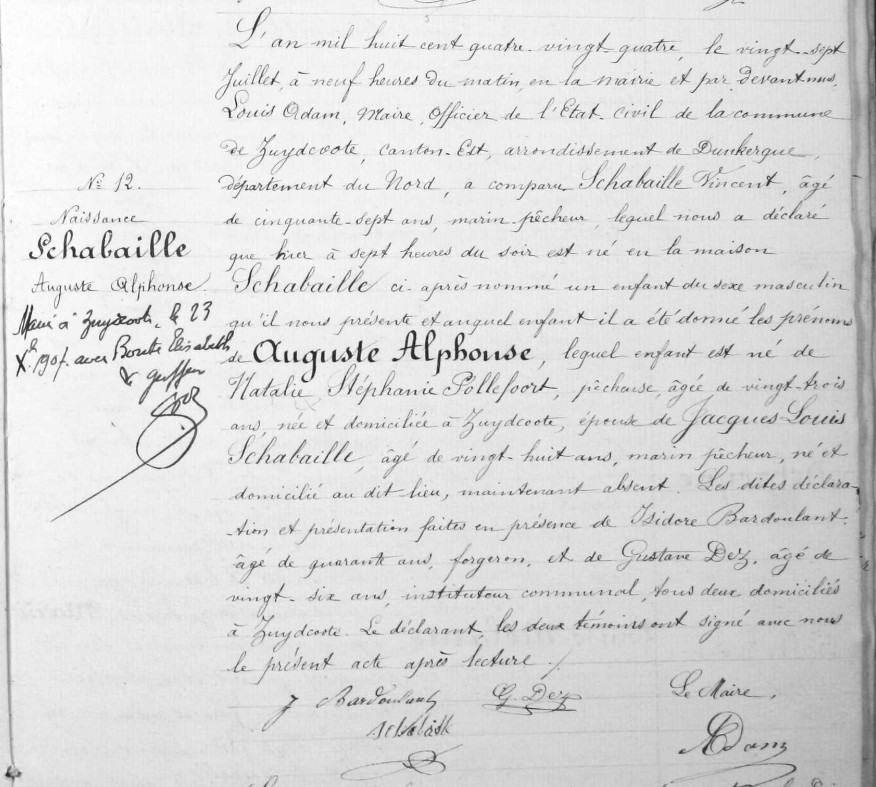 L'an mil huit cent quatre-vingt-quatre, le vingt-sept
Juillet, à neuf heures du matin, en la mairie et par devant nous,
Louis Adam, Maire, Officier de l'Etat civil de la commune
de Zuydcoote, canton-Est, arrondissement de Dunkerque,
département du Nord, a comparu Schabaille Vincent, âgé
de cinquante-sept ans, marin-pêcheur, lequel nous a déclaré
que hier à sept heures du soir est né en la maison
Schabaille ci-après nommé un enfant du sexe masculin
qu'il nous présente et auquel enfant il a été donné les prénoms
de Auguste Alphonse, lequel enfant est né de
Natalie Stéphanie Pollefoort, pêcheuse, âgée de vingt-trois
ans, née et domiciliée à Zuydcoote, épouse de Jacques-Louis
Schabaille, âgé de vingt-huit ans, marin pêcheur, né et
domicilié au dit-lieu, maintenant absent. Les dites déclara-
-tion et présentation faites en présence de Isidore Bardoulant,
âgé de quarante ans, forgeron, et de Gustave Dez, âgé de
vingt-six ans, instituteur communal, tous deux domiciliés
à Zuydcoote. Le déclarant les deux témoins ont signé avec nous
le présent acte après lecture ./.
J Bardoulant G. Dez Le Maire,
Adam
N° 12.
Naissance
Schabaille
Auguste Alphonse
Marié à Zuydcoote, le 23
Xbre 1907 avec Elisabeth